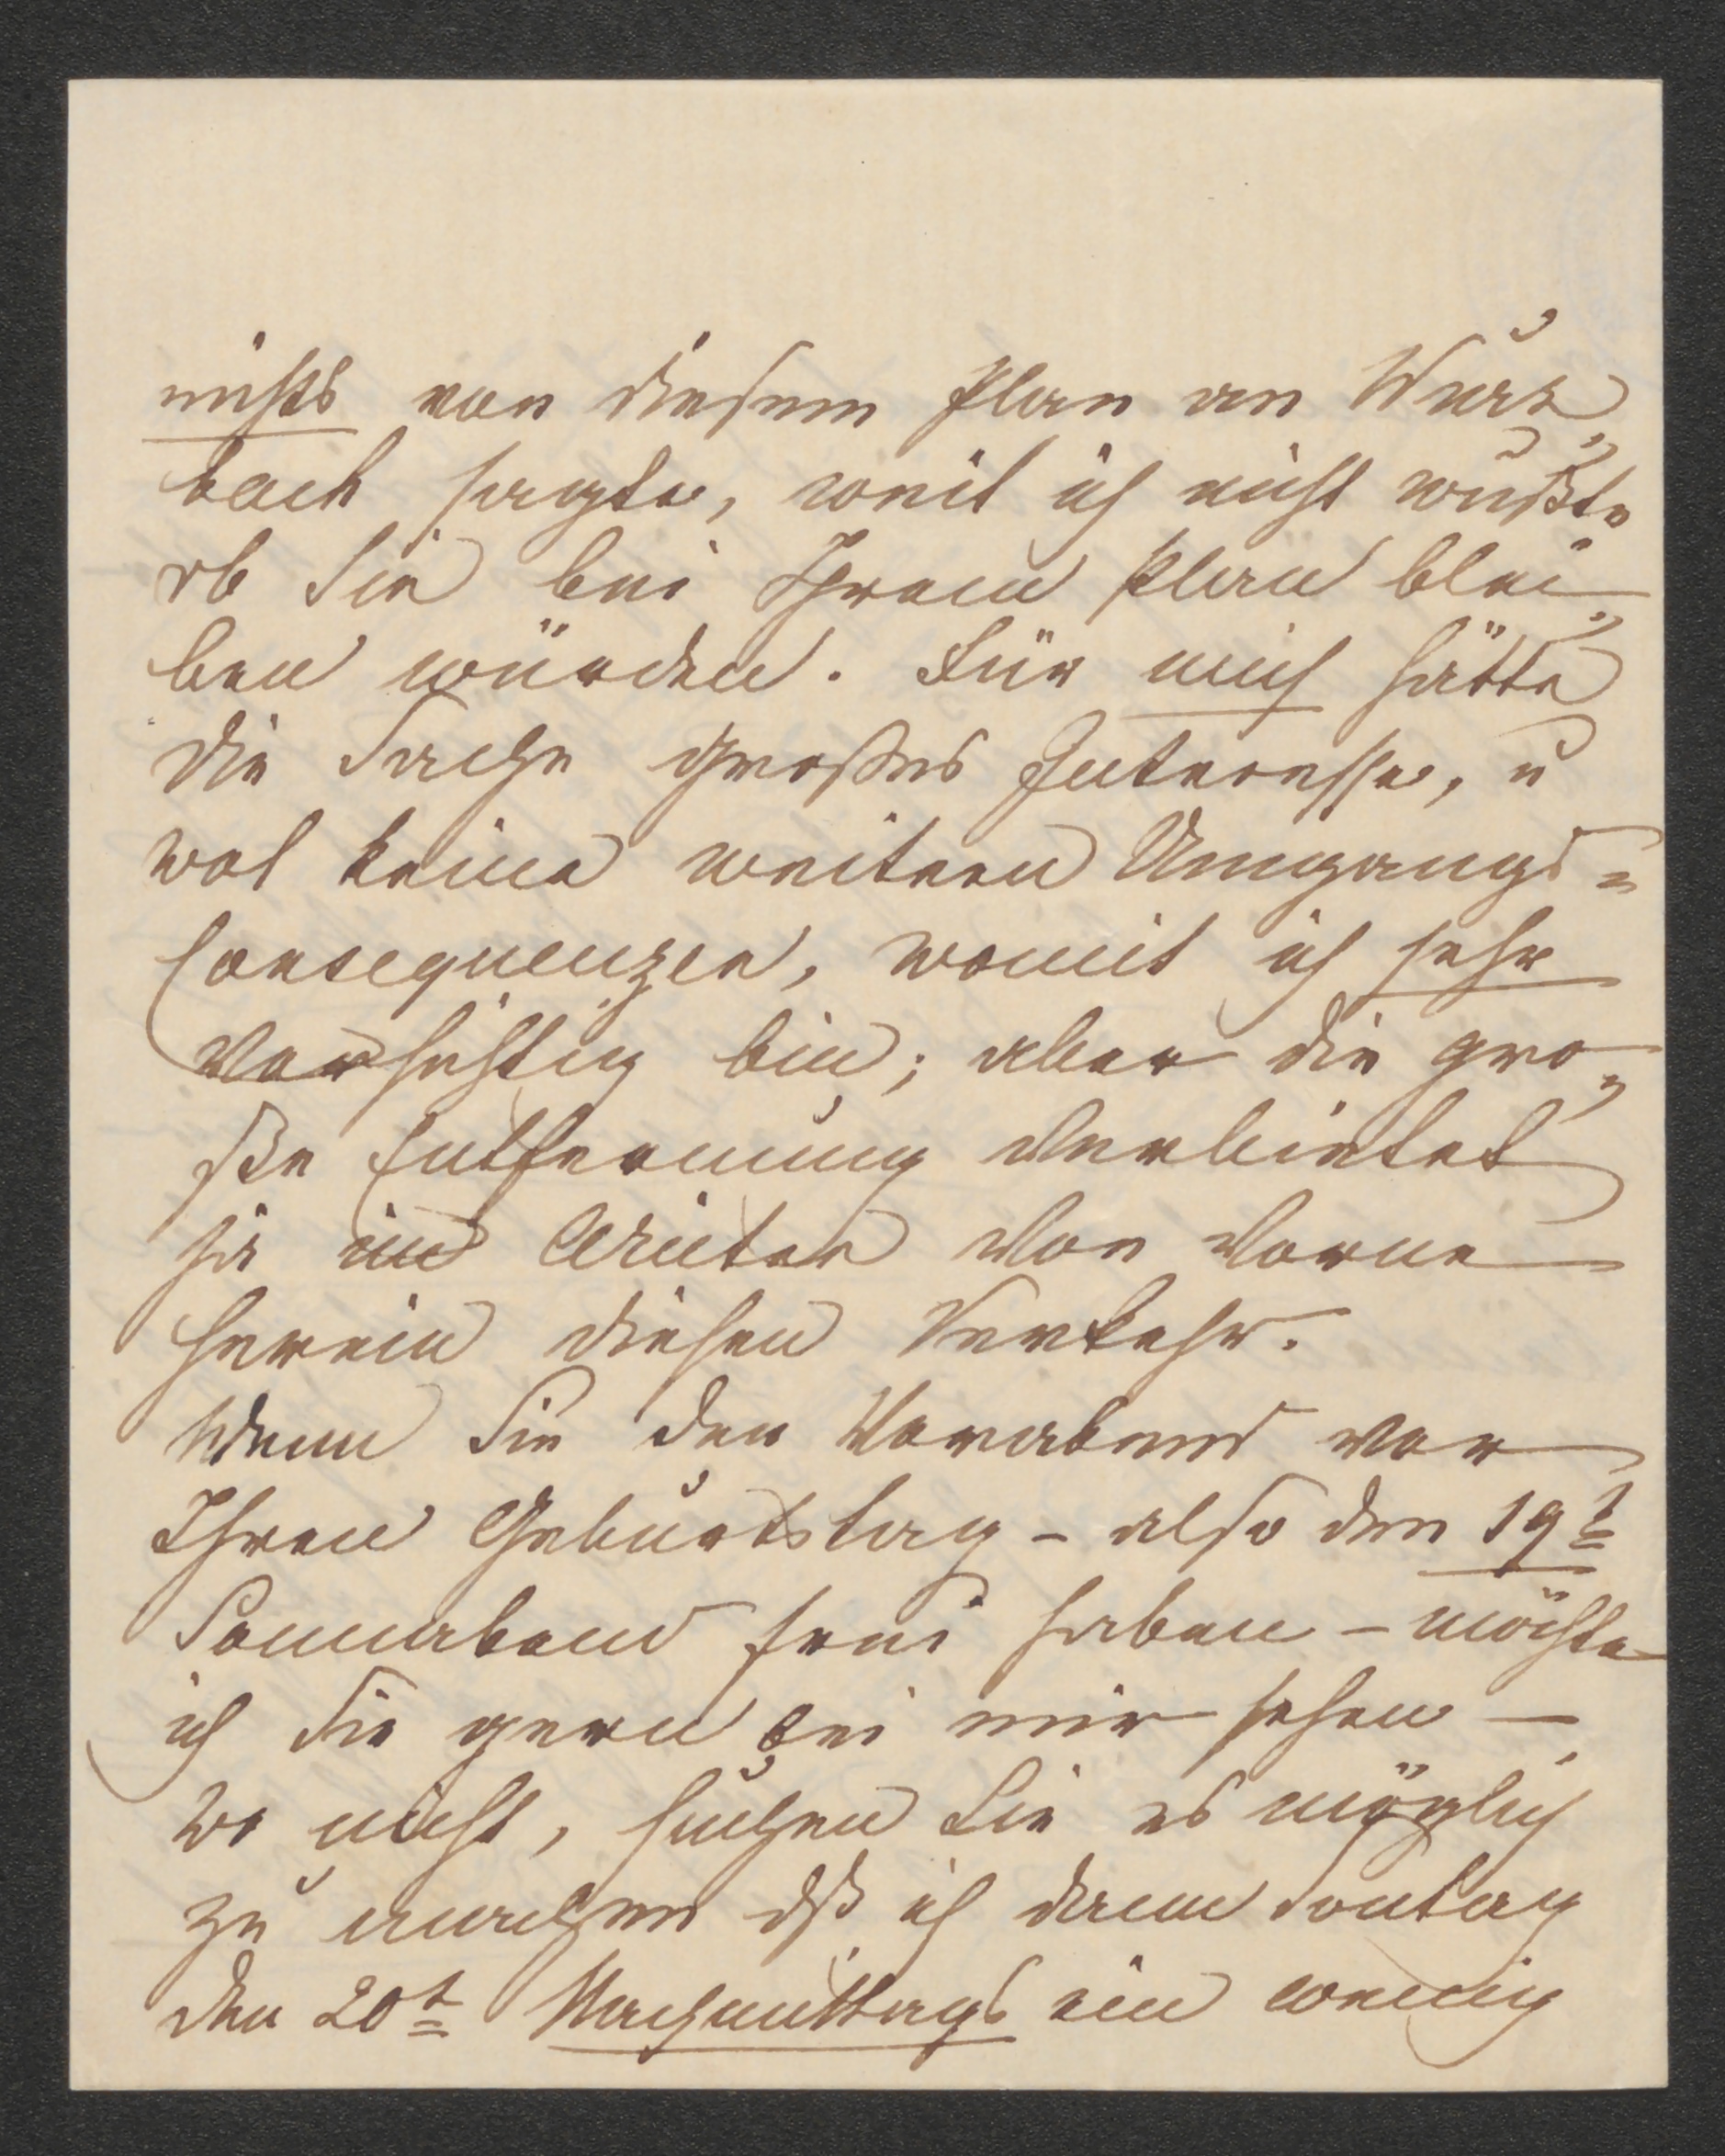 nichts von diesem Plan an Wurz„
bach sagte, weil ich nicht wußte
ob Sie bei Ihrem Plan blei„
ben würden. Für mich hätte
die Sache großes Interesse, u
wol keine weitern Umgangs=
consequenzen, womit ich sehr
vorsichtig bin; aber die gro„
ße Entfernung verbietet
ja im Winter von vorne
herein diesen Verkehr.
Wenn Sie den Vorabend vor
Ihren Geburtstag – also den 19t
Sonnabend frei haben – möchte
ich Sie gern bei mir sehen –
wo nicht, suchen Sie es möglich
zu machen dß ich dann Sontag
den 20t Nachmittags ein wenig